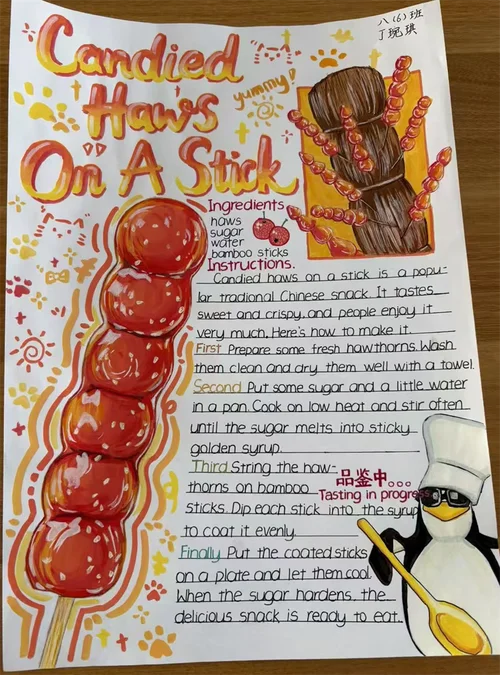 八(6)班
丁琬琪
Candied
Haws
On A Stick
yummy!
Ingredients
haws
sugar
water
bamboo sticks
Instructions.
Candied haws on a stick is a popu-
lar tradional Chinese snack. It tastes
sweet and crispy, and people enjoy it
very much. Here's how to make it.
First Prepare some fresh hawthorns. Wash
them clean and dry them well with a towel.
Second Put some sugar and a little water
in a pan. Cook on low heat and stir often
until the sugar melts into sticky
golden syrup.
Third String the haw-
thorns on bamboo
sticks. Dip each stick into the syrup
to coat it evenly.
Finally Put the coated sticks
on a plate and let them cool.
When the sugar hardens, the
delicious snack is ready to eat.
品鉴中...
Tasting in progress